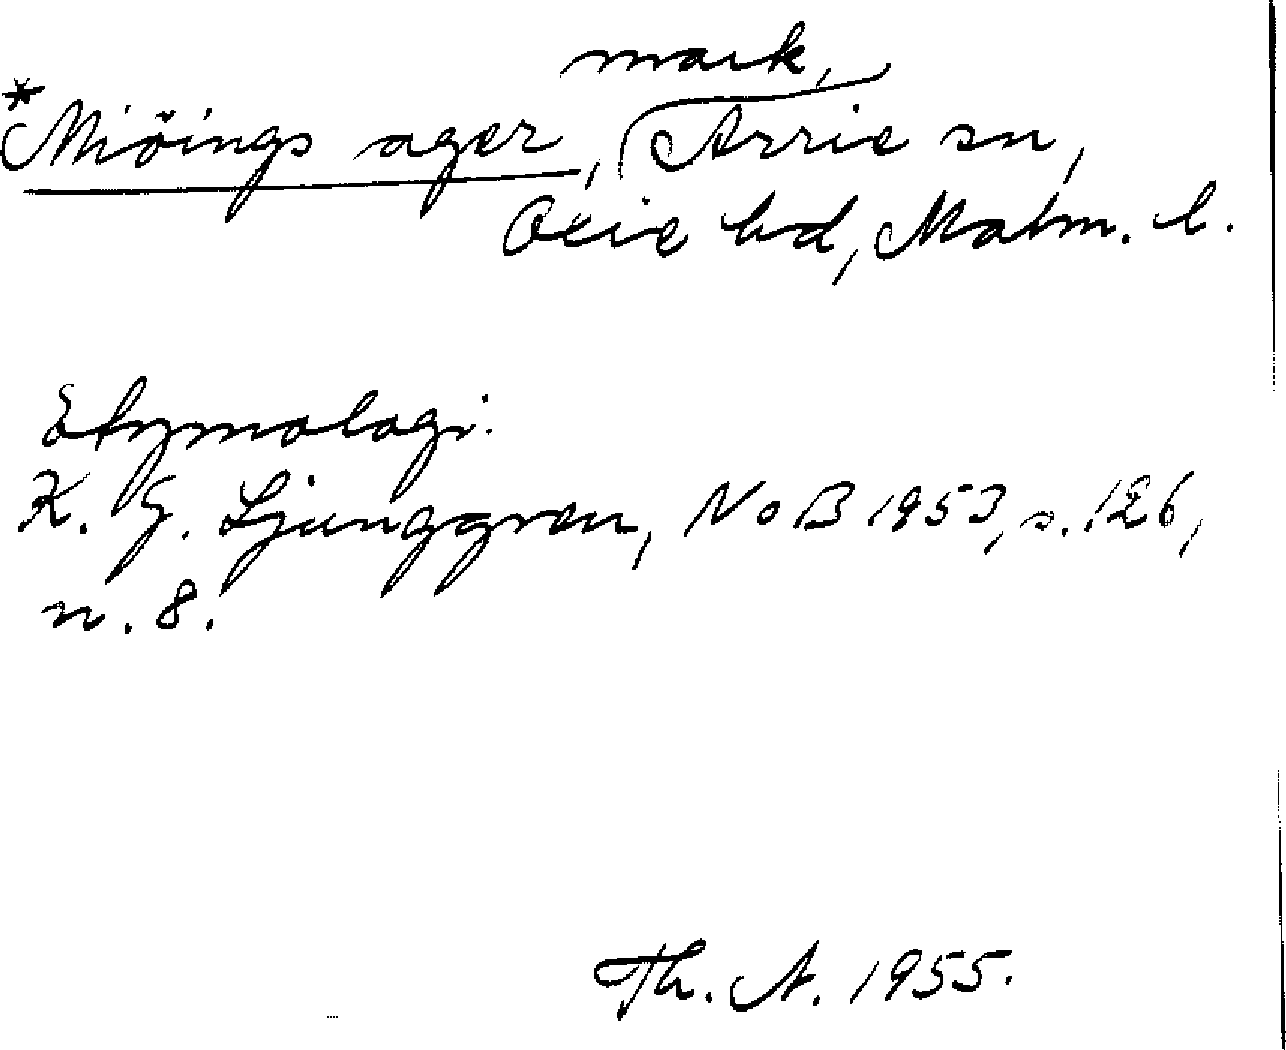 mark,
*Miöings ager, Arrie sn,
Oxie hd, Malm. l.
Etymologi:
K. G. Ljunggren, NoB 1953, s. 126,
n. 8.
Th. A. 1955.